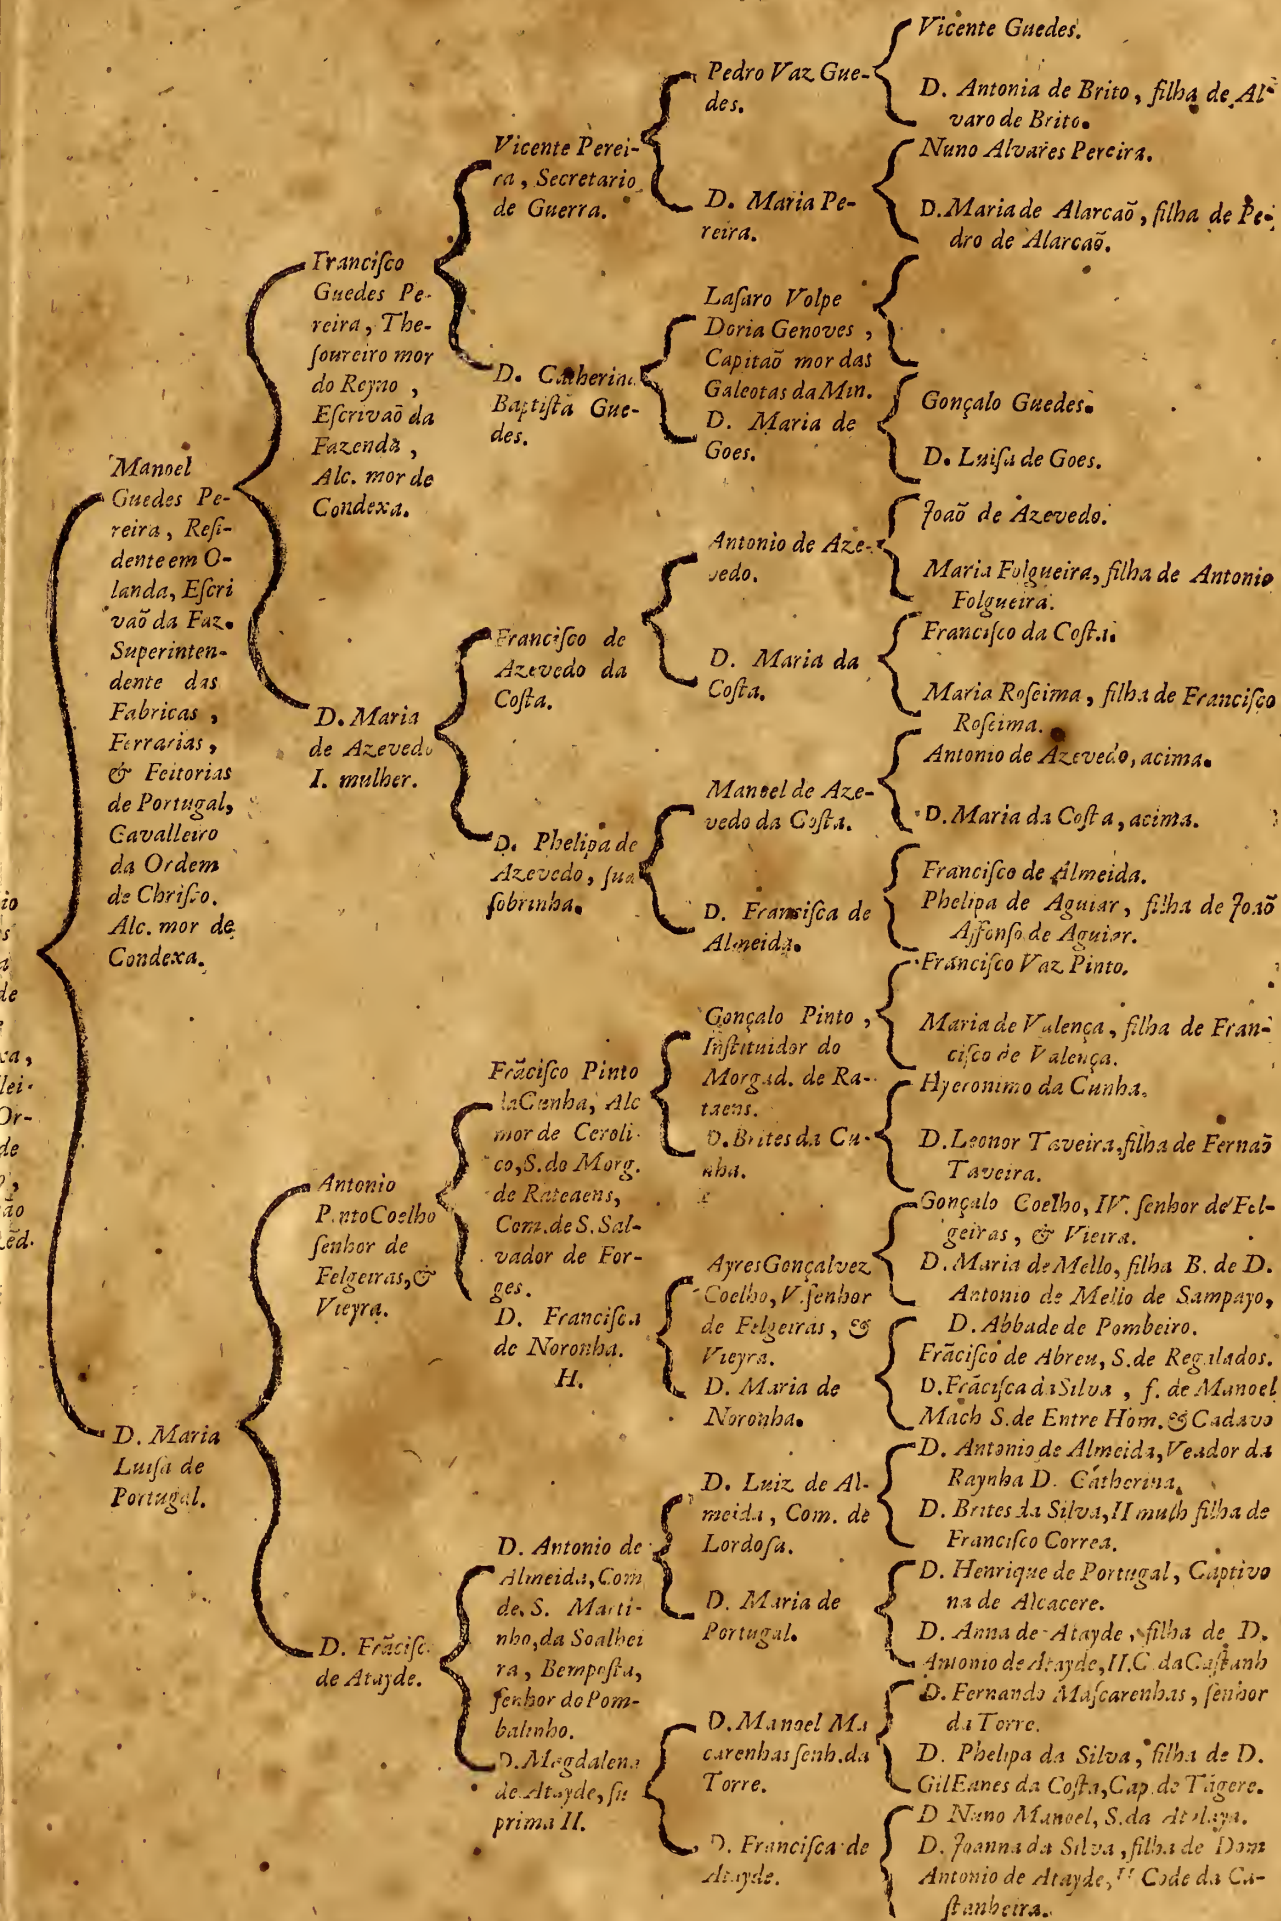 io
s
a
de
ca,
lei-
Or-
de
Manoel
Guedes Pe-
reira, Reſi-
dente em O-
landa, Eſcri
vaõ da Faz.
Superinten-
dente das
Fabricas ,
Ferrarias ,
& Feitorias
de Portugal,
Cavalleiro
da Ordem
de Chriſto.
Alc. mor de
Condexa.
D. Maria
Luiſa de
Portugal.
Franciſco
Guedes Pe-
reira, The-
ſoureiro mor
do Reyno ,
Eſcrivaõ da
Fazenda ,
Alc. mor de
Condexa.
D. Maria
de Azevedo
I. mulher.
Antonio
Pinto Coelho
ſenhor de
Felgeiras, &
Vieyra.
D. Frãciſc.
de Atayde.
Vicente Perei-
ra, Secretario
de Guerra.
D. Catherina
Baptiſta Gue-
des.
Franciſco de
Azevedo da
Coſta.
D. Phelipa de
Azevedo, ſua
ſobrinha.
Frãciſco Pinto
da Cunha, Alc
mor de Ceroli-
co, S. do Morg.
de Rateaens,
Com. de S. Sal-
vador de For-
ges.
D. Franciſca
de Noronha.
H.
D. Antonio de
Almeida, Com
de S. Marti-
nho, da Soalhei
ra, Bempoſta,
ſenhor do Pom-
balinho.
D. Magdalena
de Atayde, ſu
prima II.
Pedro Vaz Gue-
des.
D. Maria Pe-
reira.
Laſaro Volpe
Doria Genoves ,
Capitaõ mor das
Galeotas da Min.
D. Maria de
Goes.
Antonio de Aze-
vedo.
D. Maria da
Coſta.
Manoel de Aze-
vedo da Coſta.
D. Franciſca de
Almeida.
Gonçalo Pinto ,
Inſtituidor do
Morgad. de Ra-
taens.
D. Brites da Cu-
nha.
Ayres Gonçalvez
Coelho, V. ſenhor
de Felgeiras, &
Vieyra.
D. Maria de
Noronha.
D. Luiz de Al-
meida, Com. de
Lordoſa.
D. Maria de
Portugal.
D. Manoel Ma
carenhas ſenh. da
Torre.
D. Franciſca de
Atayde.
Vicente Guedes.
D. Antonia de Brito, filha de Al-
varo de Brito.
Nuno Alvares Pereira.
D. Maria de Alarcaõ, filha de Pe-
dro de Alarcaõ.
Gonçalo Guedes.
D. Luiſa de Goes.
Joaõ de Azevedo.
Maria Folgueira, filha de Antonio
Folgueira.
Franciſco da Coſta.
Maria Roſeima, filha de Franciſco
Roſeima.
Antonio de Azevedo, acima.
D. Maria da Coſta, acima.
Franciſco de Almeida.
Phelipa de Aguiar, filha de Joaõ
Affonſo de Aguiar.
Franciſco Vaz Pinto.
Maria de Valença, filha de Fran-
ciſco de Valença.
Hyeronimo da Cunha.
D. Leonor Taveira, filha de Fernaõ
Taveira.
Gonçalo Coelho, IV. ſenhor de Fel-
geiras, & Vieira.
D. Maria de Mello, filha B. de D.
Antonio de Mello de Sampayo,
D. Abbade de Pombeiro.
Frãciſco de Abreu, S. de Regalados.
D. Frãciſca da Silva, f. de Manoel
Mach S. de Entre Hom. & Cadavo
D. Antonio de Almeida, Veador da
Raynha D. Catherina.
D. Brites da Silva, II mulh filha de
Franciſco Correa.
D. Henrique de Portugal, Captivo
na de Alcacere.
D. Anna de Atayde, filha de D.
Antonio de Atayde, II. C. da Caſtanh
D. Fernando Maſcarenhas, ſenhor
da Torre.
D. Phelipa da Silva, filha de D.
Gil Eanes da Coſta, Cap. de Tãgere.
D Nuno Manoel, S. da Atalaya.
D. Joanna da Silva, filha de Dom
Antonio de Atayde, II Cõde da Ca-
ſtanheira.